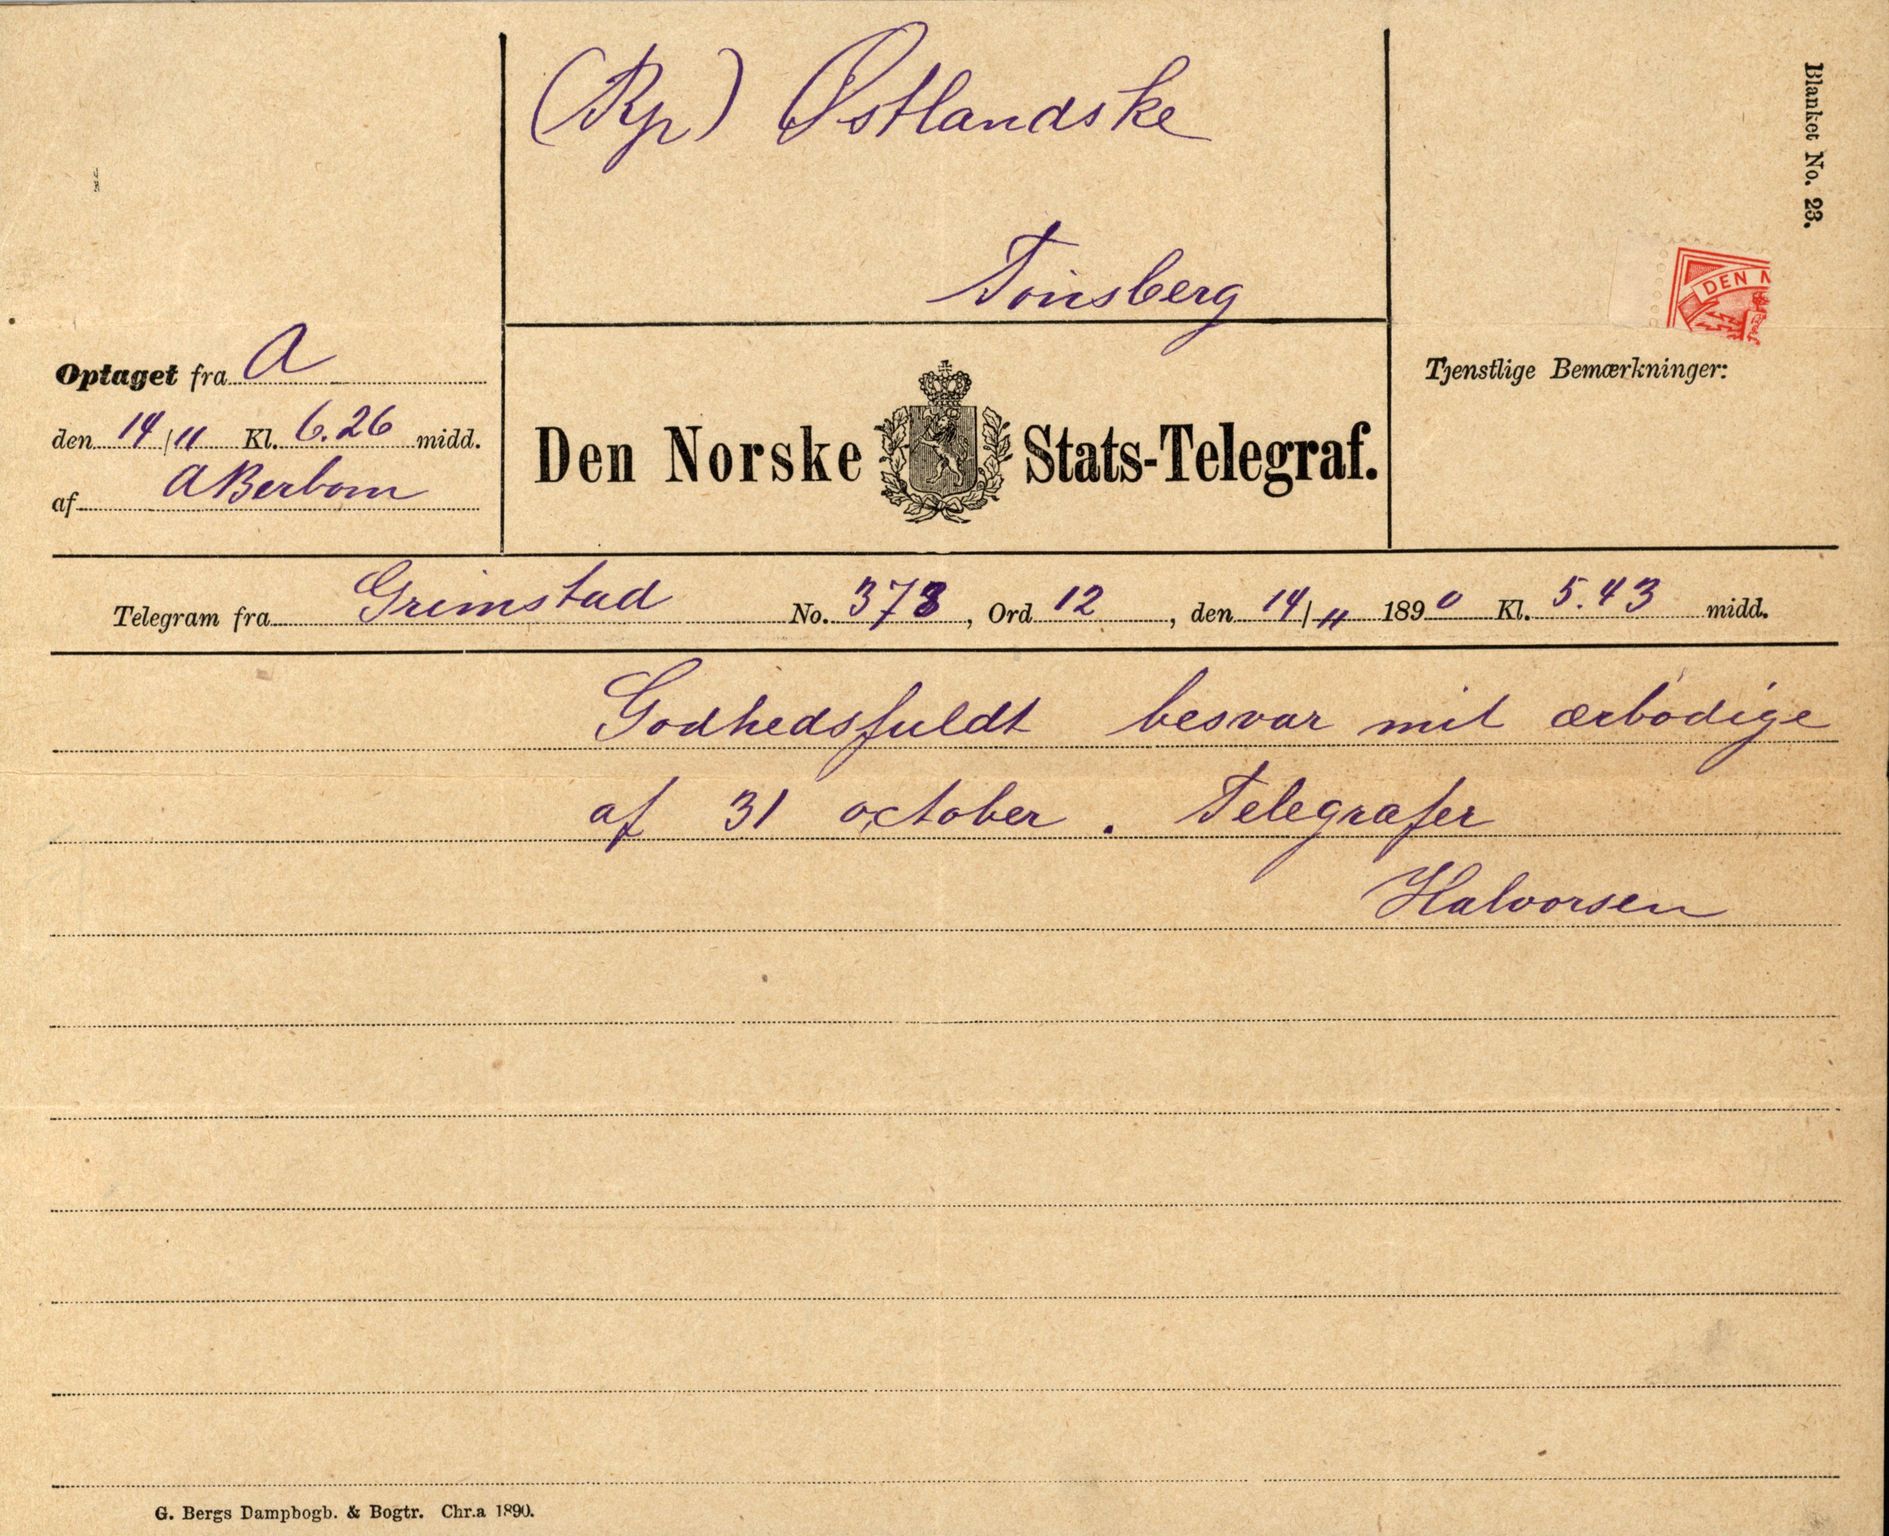 (Rp) Østlandske
Tönsberg
Blanket No. 23.
DEN N
Optaget fra A
den 14/11 Kl. 6.26 midd.
af ABerbom
Den Norske Stats-Telegraf.
Tjenstlige Bemærkninger:
Telegram fra Grimstad No. 378, Ord 12, den 14/11 1890 Kl. 5.43 midd.
Godhedsfuldt besvar mit ærbödige
af 31 october. Telegrafer
Halvorsen
G. Bergs Dampbogb. & Bogtr. Chr.a 1890.